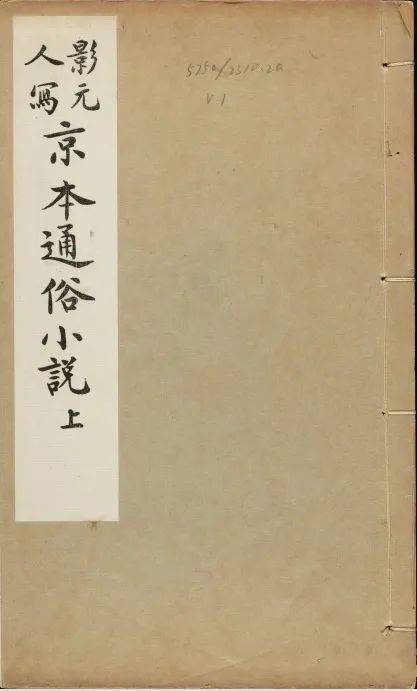 影元
人寫
京本通俗小説 上
5750/2310.2a
v.1